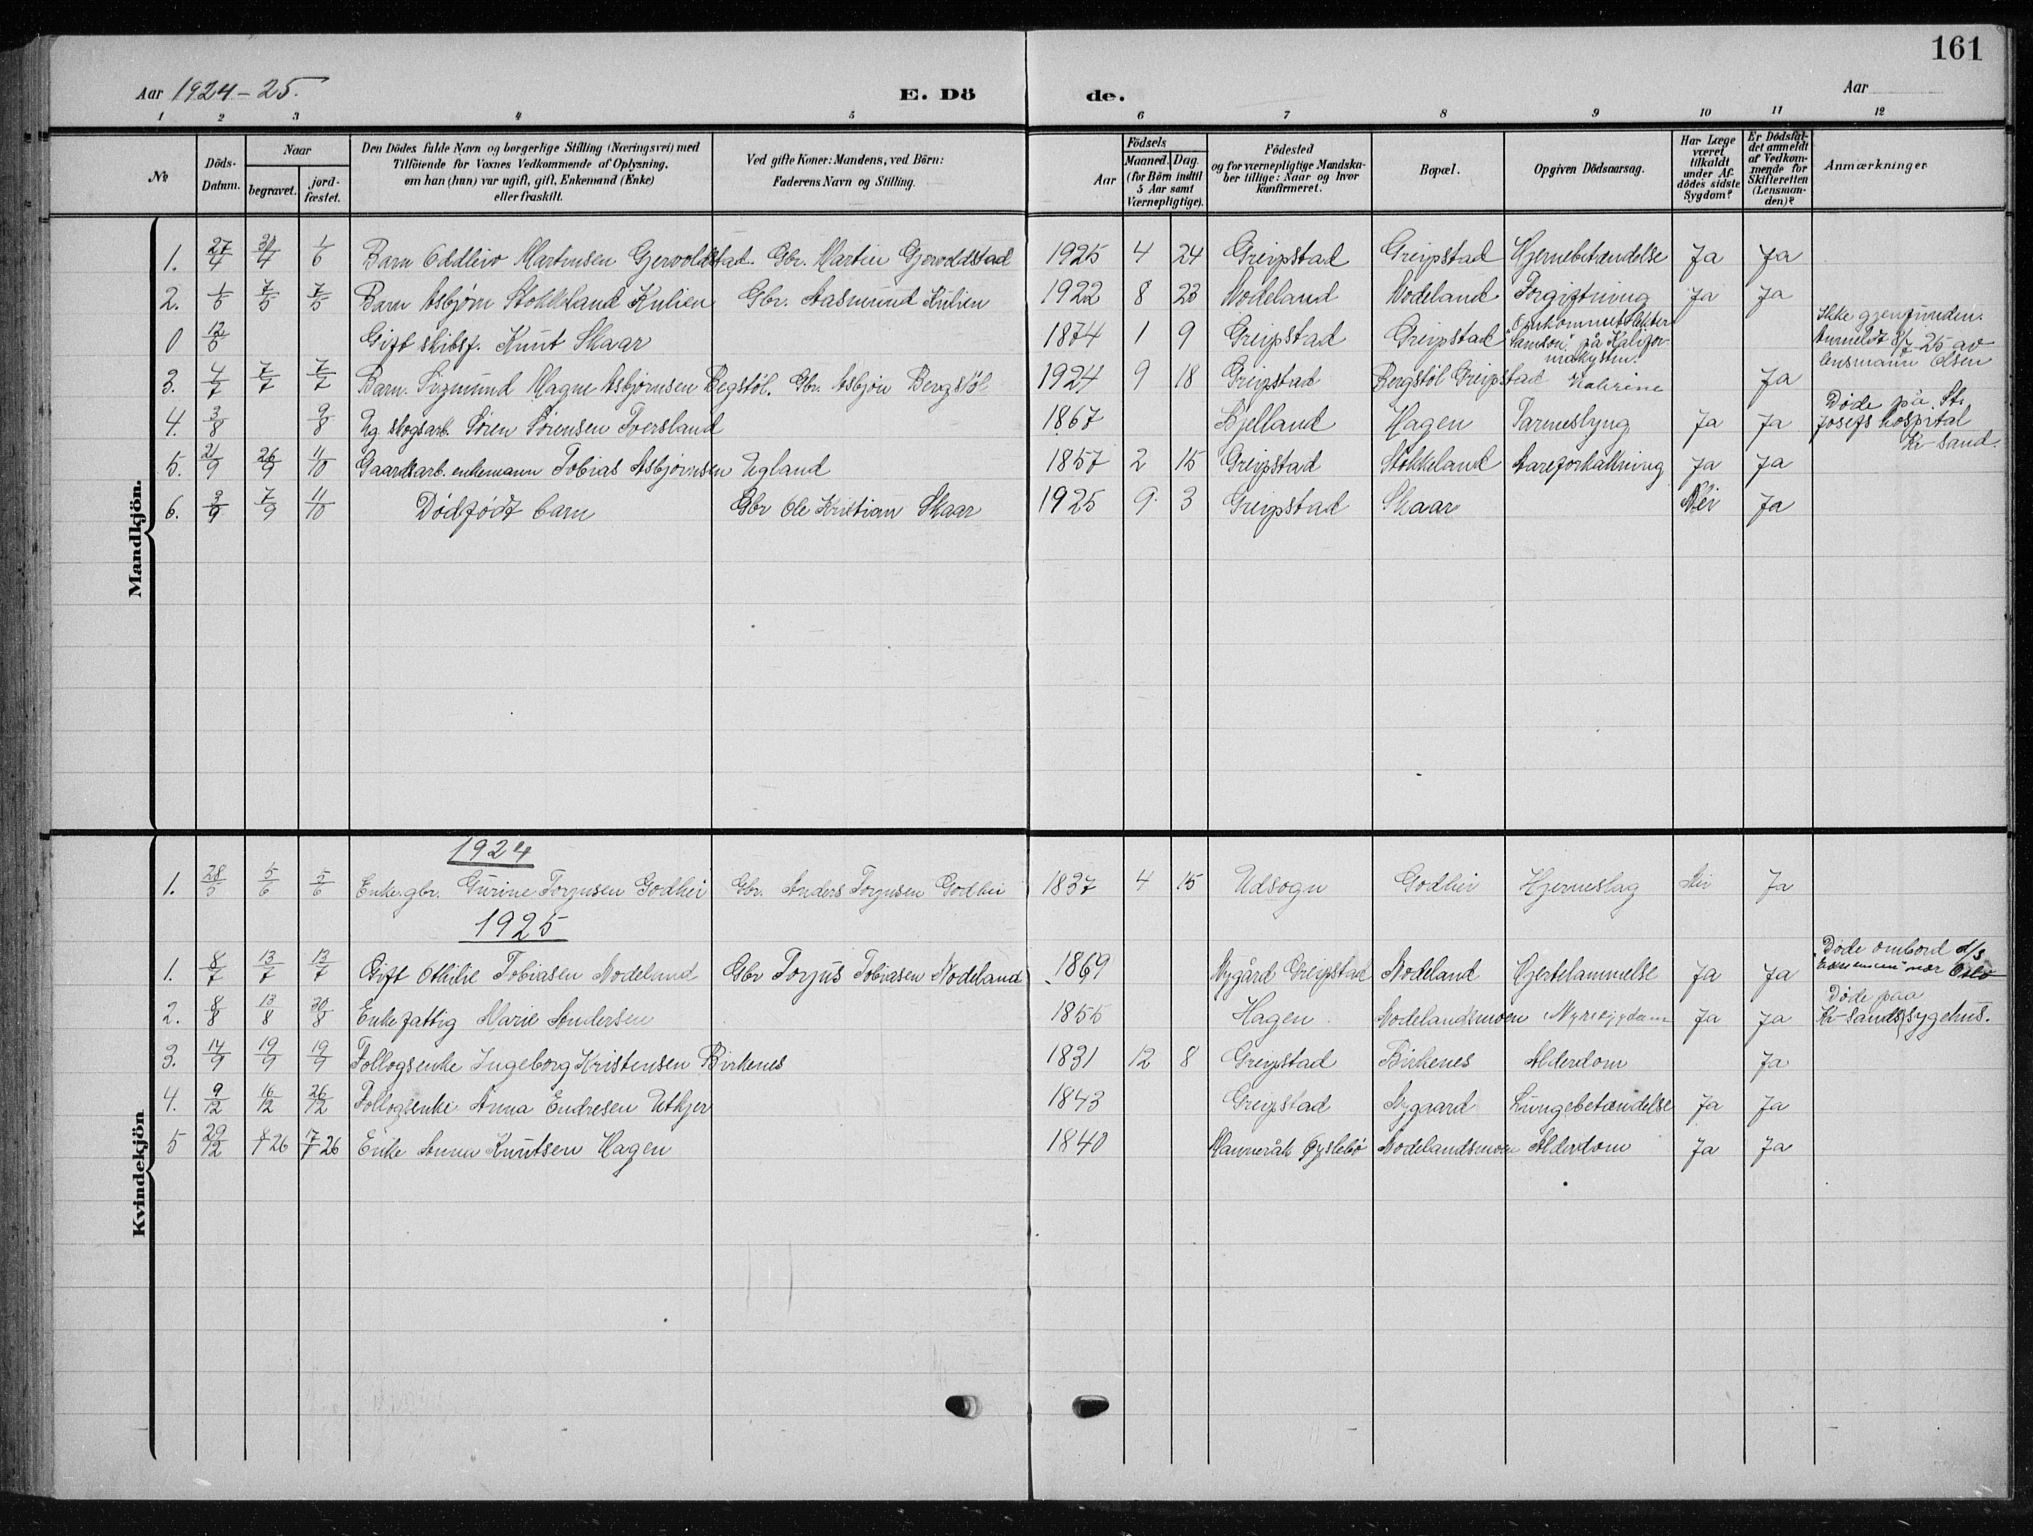 161
Aar 1924-25. E. Dö de. Aar
1 2 3 4 5 6 7 8 9 10 11 12
№ Döds-Datum. Naar begravet. jordfæstet. Den Dödes fulde Navn og borgerlige Stilling (Næringsvei) med Tilföiende for Voxnes Vedkommende af Oplysning, om han (hun) var ugift, gift, Enkemand (Enke) eller fraskilt. Ved gifte Koner: Mandens, ved Börn: Faderens Navn og Stilling. Födsels Aar Maaned. Dag. (for Börn indtil 5 Aar samt Værnepligtige). Födested og for værnepligtige Mandskaber tillige: Naar og hvor konfirmeret. Bopæl. Opgiven Dödsaarsag. Har Læge været tilkaldt under Afdödes sidste Sygdom? Er Dödsfaldet anmeldt af Vedkommende for Skifteretten (Lensmanden)? Anmærkninger
Mandkjön.
1. 27/4 30/4 1/6 Barn Oddleiv Martinsen Gjervoldstad. Gbr. Martin Gjervoldstad 1925 4 24 Greipstad Greipstad Hjernebetændelse Ja Ja
2. 1/5 7/5 7/5 Barn Asbjørn Stokkeland Kulien Gbr. Aasmund Kulien 1922 8 23 Nodeland Nodeland Forgiftning Ja Ja
0 12/5 Gift skibsf. Knut Skaar 1874 1 9 Greipstad Greipstad Omkommet "Samson" på Kaliforniakysten. Ikke gjenfunden. Anmeldt 8/7 25 av lensmann Olsen
3. 4/7 7/7 7/7 Barn Sigmund Magne Asbjørnsen Begstøl. Gbr. Asbjørn Bergstøl 1924 9 18 Greipstad Bergstøl Greipstad Ja
4. 3/8 9/8 Ug. skogsarb. Søren Sørensen Tversland 1867 Bjelland Hagen Tarmeslyng Ja Ja Døde på St. Josefs hospital Kr sand.
5. 21/9 26/9 11/10 Gaardsarb. enkemann Tobias Asbjørnsen Ugland 1857 2 15 Greipstad Stokkeland Aareforkalkning Ja Ja
6. 3/9 7/9 11/10 Dødfødt barn Gbr Ole Kristian Skaar 1925 9 3 Greipstad Skaar Nei Ja
Kvindekjön
1924
1. 28/5 5/6 5/6 Enke gbr. Gurine Torjusen Godhei Gbr. Anders Torjusen Godhei 1837 4 15 Udsogn Godhei Hjerneslag Nei Ja
1925
1. 8/7 13/7 13/7 Gift Othilie Tobiasen Nodeland Gbr Torjus Tobiasen Nodeland 1869 Nygård Greipstad Nodeland Hjertelammelse Ja Ja Døde ombord d/s nær Oslo
2. 8/8 13/8 30/8 Enke fattig Marie Andersen 1855 Hagen Nodelandsmoen Nyresygdom Ja Ja Døde paa Kr-sands sygehus.
3. 14/9 19/9 19/9 Follogsenke Ingeborg Kristensen Birkenes 1831 12 8 Greipstad Birkenes Alderdom Ja
4. 9/12 16/12 26/12 Follogsenke Anna Endresen Utkjer 1843 Greipstad Nygaard Lungebetændelse Ja Ja
5 29/12 8/1 26 17/1 26 Enke Anna Knutsen Hagen 1840 Manneråk Øyslebø Nodelandsmoen Alderdom Ja Ja